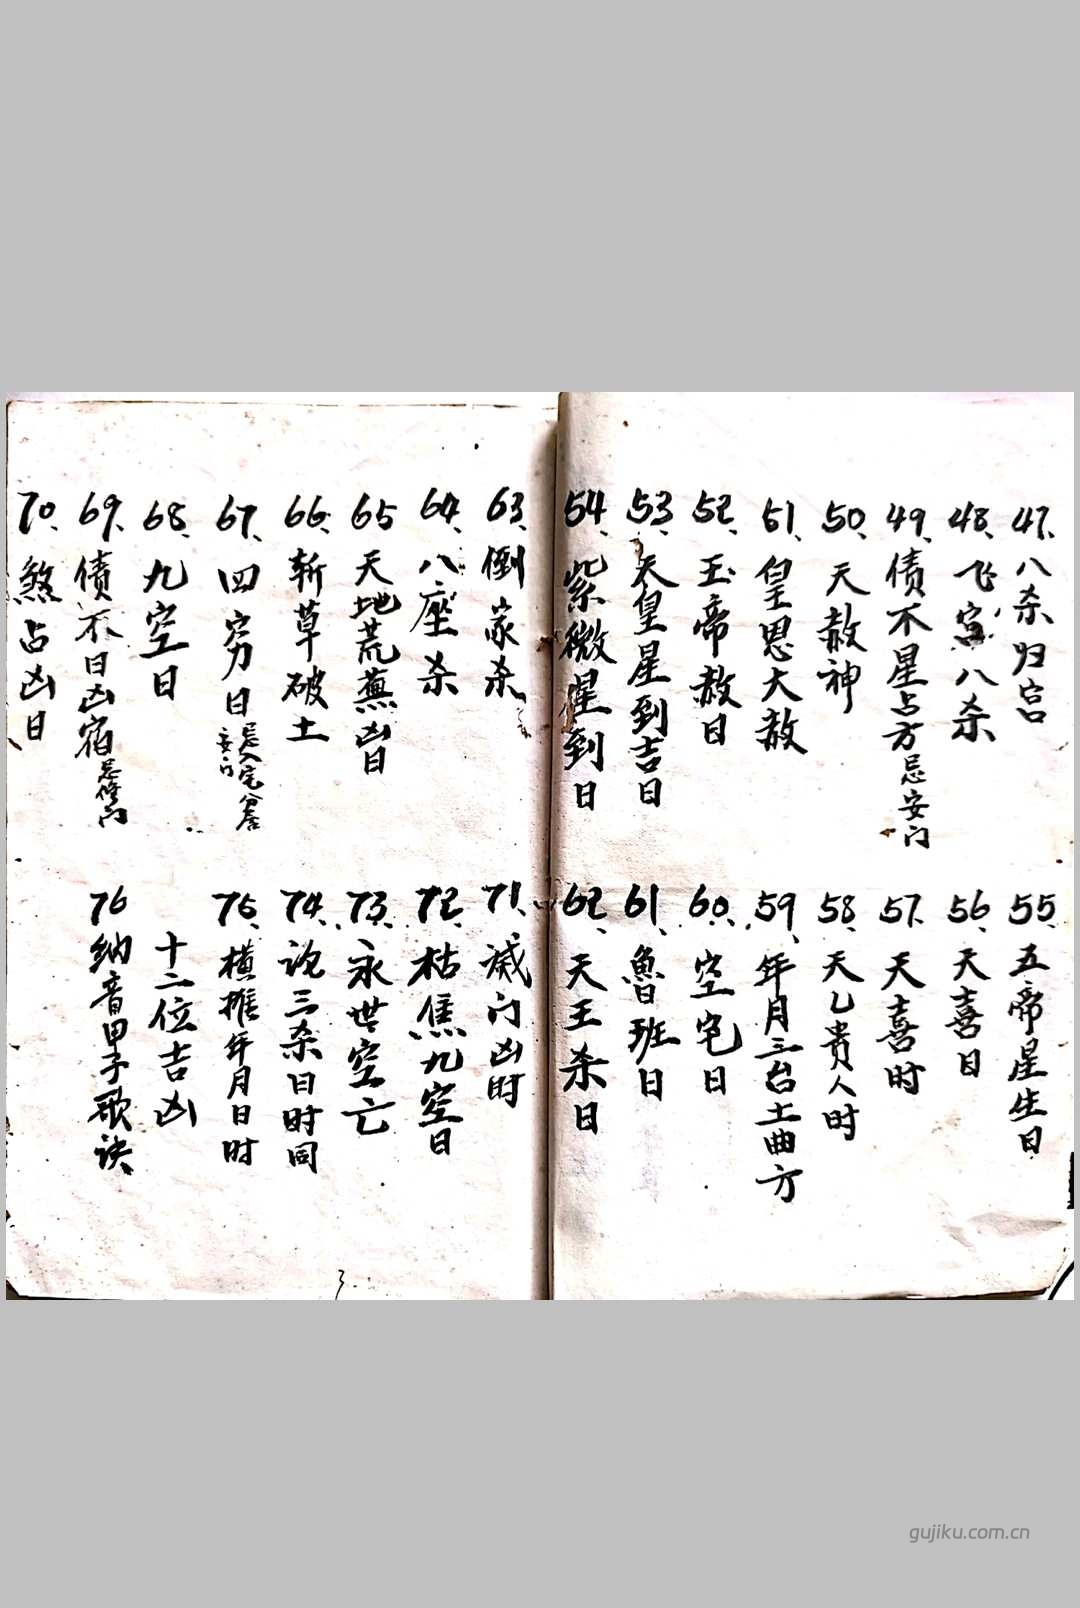 47、八杀归宫
48、飞宫八杀
49、债不星占方忌安门
50、天赦神
51、皇恩大赦
52、玉帝赦日
53、天皇星到吉日
54、紫微星到日
55、五帝星生日
56、天喜日
57、天喜时
58、天乙贵人时
59、年月三台土曲方
60、空宅日
61、魯班日
62、天王杀日
63、倒家杀
64、八座杀
65 天地荒蕪凶日
66、斩草破土
67、四穷日忌入宅分居安门
68、九空日
69、债不日凶宿忌修门
70、煞占凶日
71、减门凶时
72、枯焦九空日
73、永世空亡
74、论三杀日时同
75、横推年月日时
十二位吉凶
76 纳音甲子歌诀
3
gujiku.com.cn